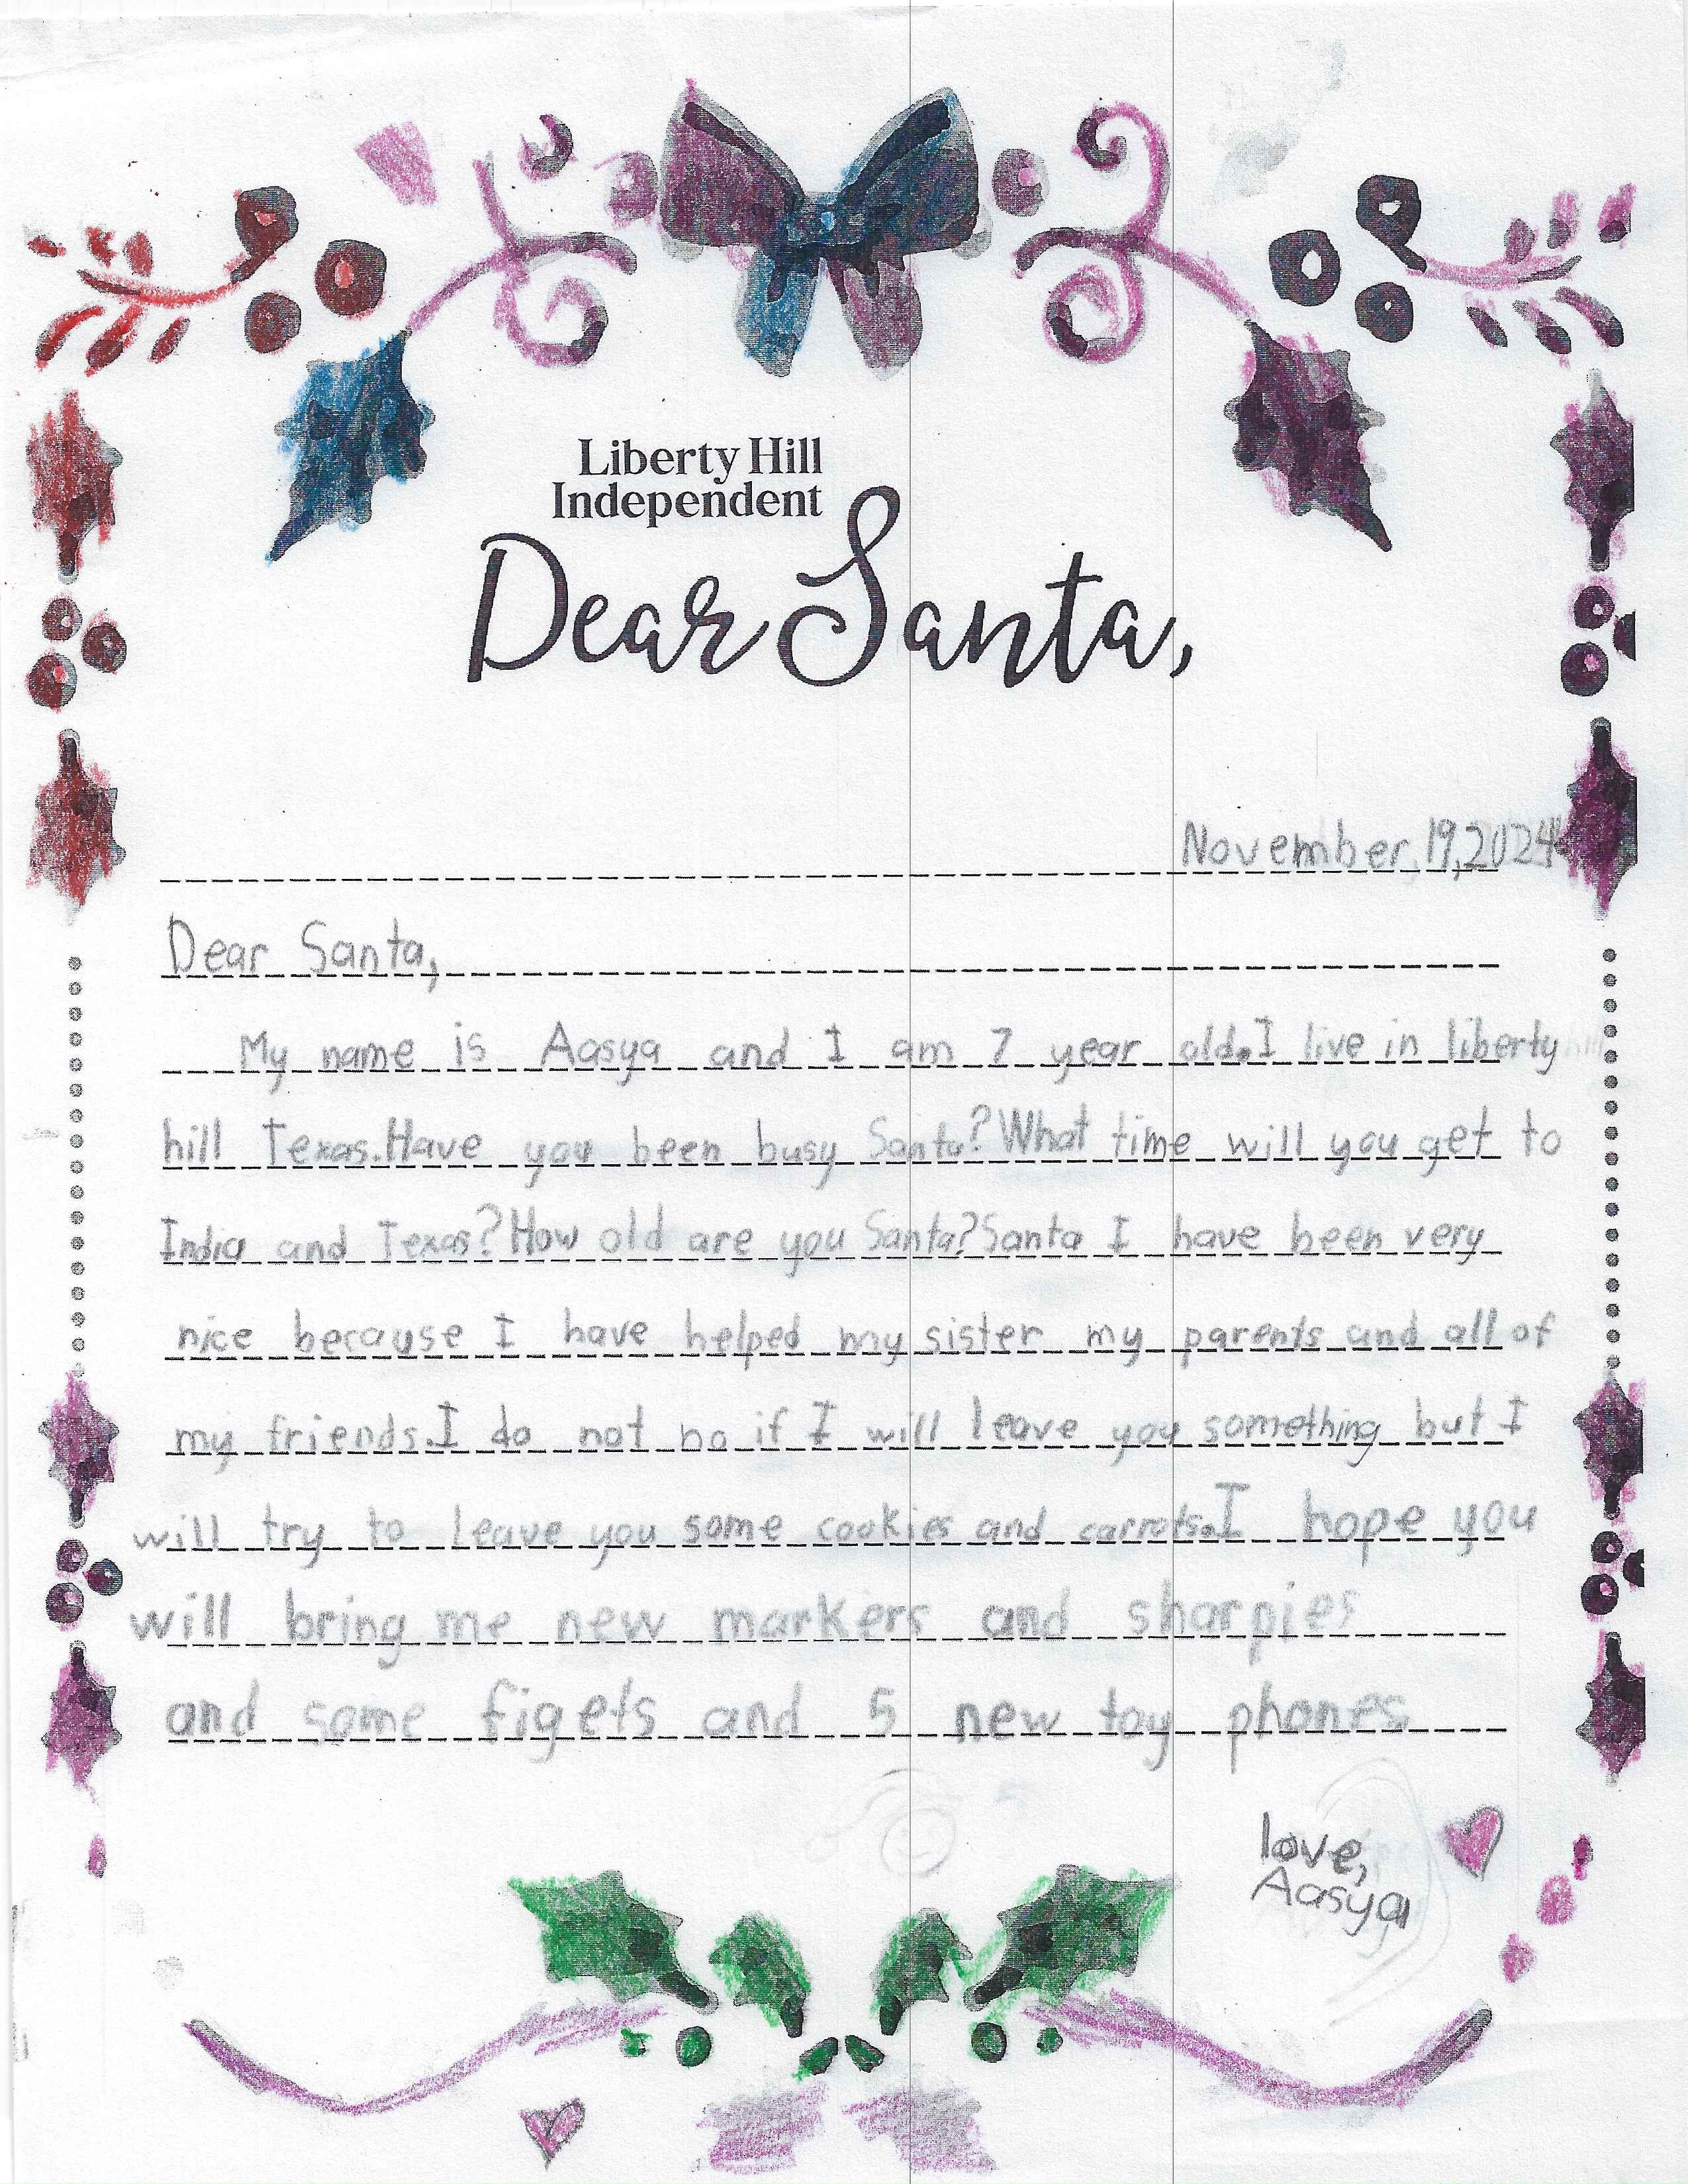 Liberty Hill
Independent
Dear Santa,
November,19,2024
Dear Santa,
My name is Aasya and I am 7 year old.I live in liberty
hill Texas.Have you been busy Santa?What time will you get to
India and Texas?How old are you Santa?Santa I have been very
nice because I have helped my sister my parents and all of
my friends.I do not no if I will leave you something but I
will try to leave you some cookies and carrots.I hope you
will bring me new markers and sharpies
and some figets and 5 new toy phones
love,
Aasya